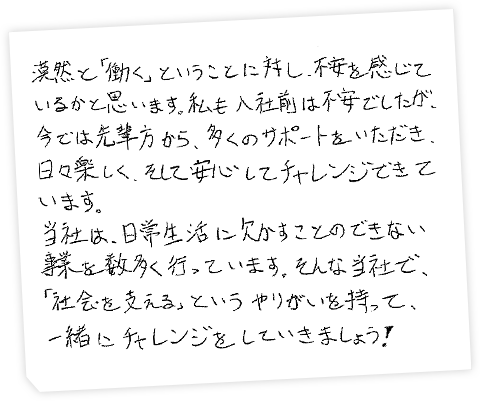 漠然と「働く」ということに対し、不安を感じて
いるかと思います。私も入社前は不安でしたが、
今では先輩方から、多くのサポートをいただき、
日々楽しく、そして安心してチャレンジできて
います。
当社は、日常生活に欠かすことのできない
事業を数多く行っています。そんな当社で、
「社会を支える」というやりがいを持って、
一緒にチャレンジをしていきましょう!